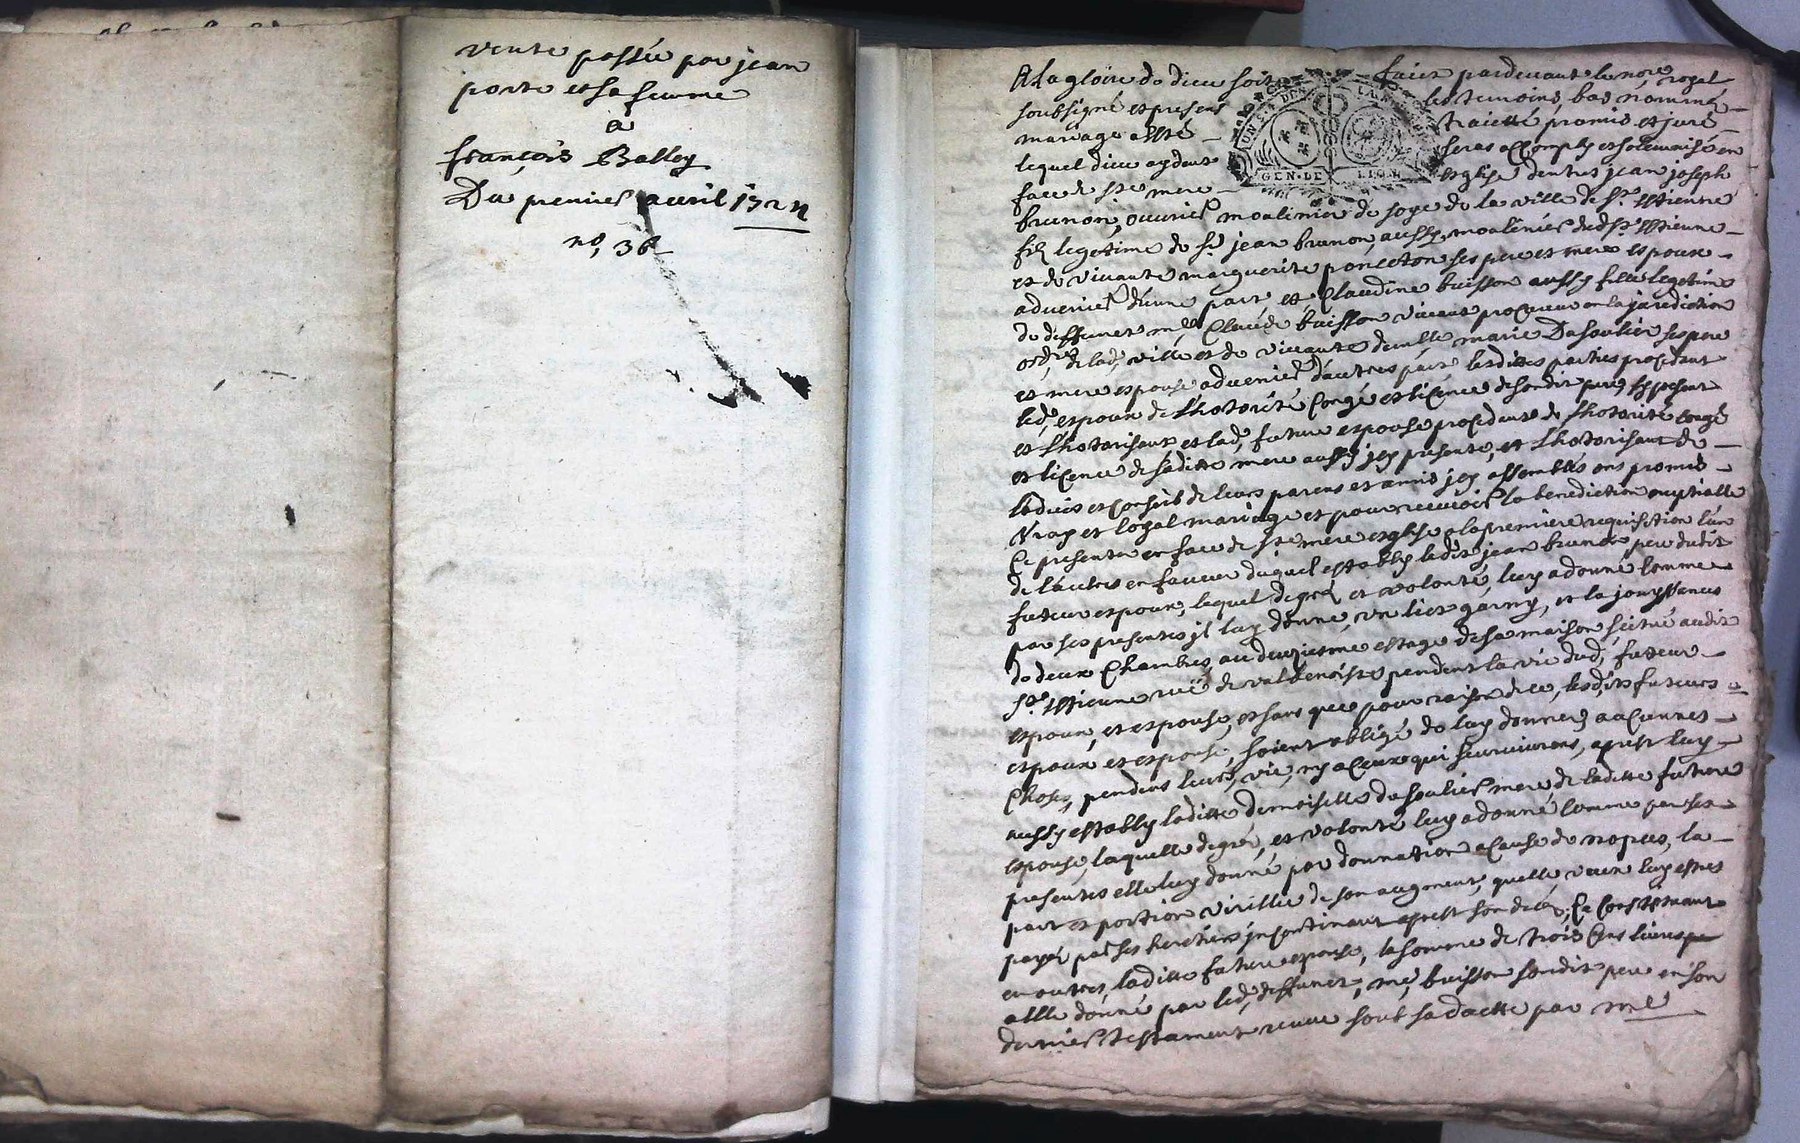 vente passée par jean
porte et sa femme
a
françois Balley
Du premier avril 1724
no, 36
A la gloire de dieu soit faict pardevant le nore royal
soubsigné et present les temoins bas nommé
mariage a esté traicté promis et juré
lequel dieu aydant seras accomply et solemnisé en
face de ste mere esglise entres jean joseph
brunon, ouvrier moulinier de soye de la ville de St. Ettienne
fils legetime de sr. jean brunon, aussy moulinier dudt St. Ettienne
et de vivante marguerite ponceton ses pere et mere espoux
advenir d'une part et Claudine buisson aussy fille legetime
de deffunct me Claude buisson vivant procureur en la jurediction
ordre de lade ville et de vivante demlle marie Dasoulier ses pere
et mere espouse advenir d'autres part lesdittes parties procedant
led, espoux de l'hotorité congé et licence de sondit pere jcy present
et l'hotorisant et lade, future espouse procedante de l'hotorité congé
et licence de saditte mere aussy jcy presente, et l'hotorisant de
ladvis et conseil de leurs parens et amis jcy assemblés ont promis
vray et loyal mariage et pour recevoir la benediction nuptialle
ce presenter en face de ste mere esglise a la premiere requisition l'un
de l'autres en faveur duquel estably ledit jean brunon pere dudit
futeur espoux, lequel de gré et volonté, luy a donné comme
par ses presentes jl luy donne, un lict garny, et la jouyssances
de deux chambres, au deuziesme estage de sa maison scitué audit
St. Ettienne rüe de valbenoiste pendent la vie dud, futeur
espoux, et espouse, et sans que pour raison de ce, lesdits futeurs
espoux et espouse, soient obligé de luy donner, aucunnes
choses, pendent leurs vie, ny a ceux qui survivrons, apres luy
aussy estably laditte demoiselle dasoulier mere, de laditte future
espouse, laquelle de gré, et volonté luy a donné comme par ses
presentes elle luy donne par donnation a cause de nopces, la
part et portion virille de son augment, quelle veux luy estres
payér par ses heretiers jncontinant apres son deces, Ce Constituant
en outres, laditte future espouse, la somme de trois cens livres
a elle donné par led, deffunct, me, buisson sondit pere en son
dernier testament reçue soub sa datte par me